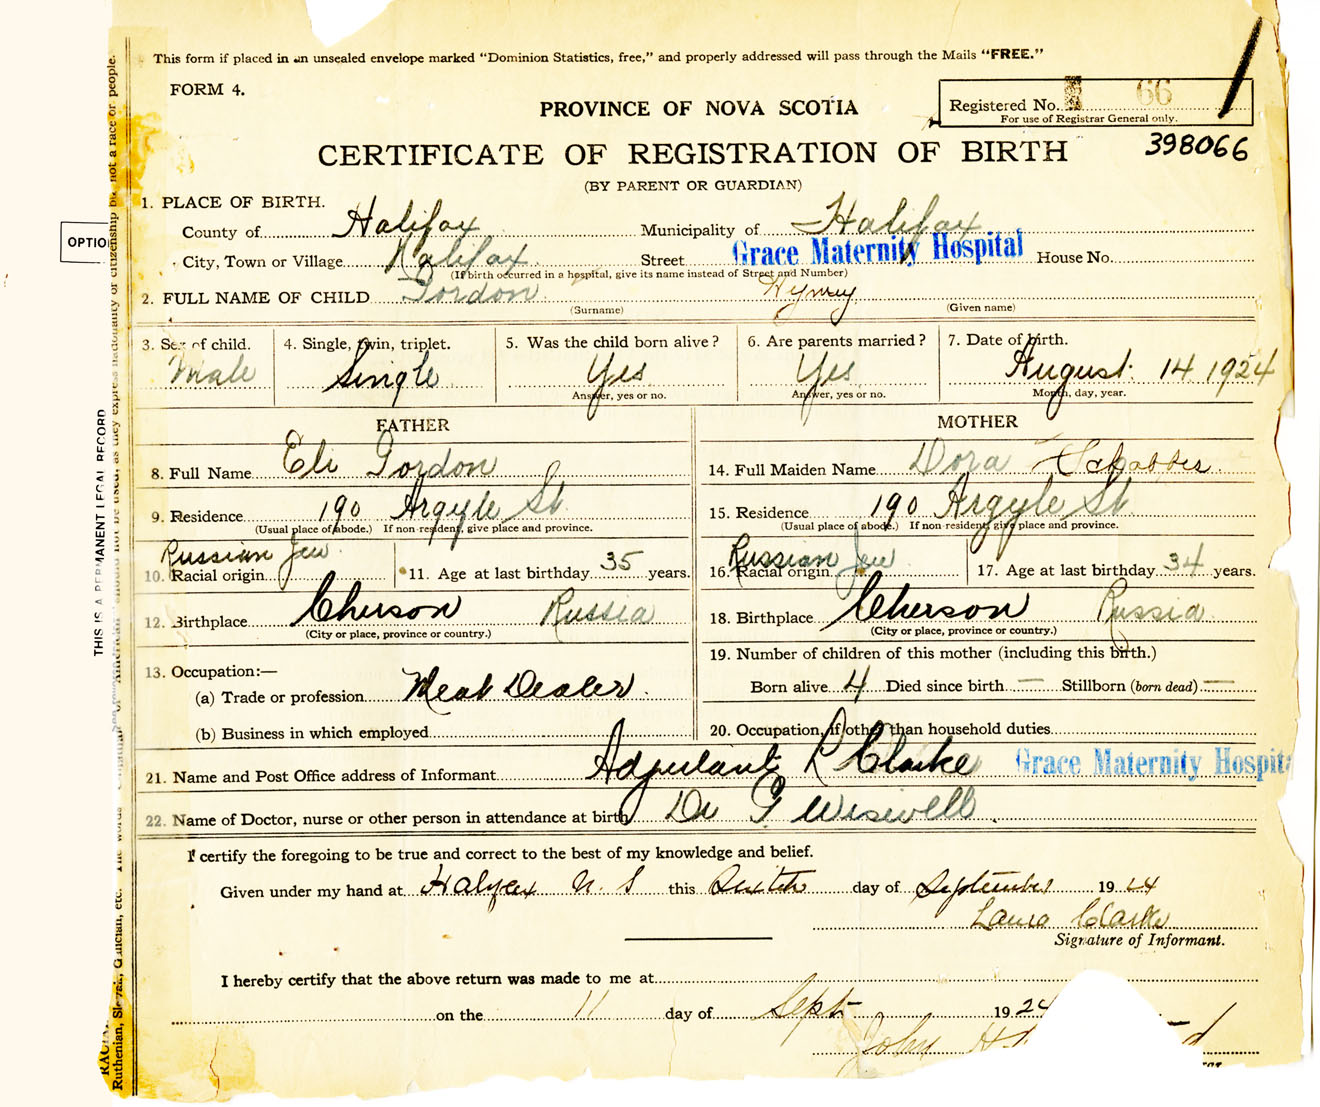 This form if placed in an unsealed envelope marked "Dominion Statistics, free," and properly addressed will pass through the Mails "FREE."
FORM 4.
PROVINCE OF NOVA SCOTIA
Registered No. 66
For use of Registrar General only.
CERTIFICATE OF REGISTRATION OF BIRTH
398066
(BY PARENT OR GUARDIAN)
1. PLACE OF BIRTH.
County of Halifax Municipality of Halifax
City, Town or Village Halifax Street Grace Maternity Hospital House No.
(If birth occurred in a hospital, give its name instead of Street and Number)
2. FULL NAME OF CHILD Gordon Hymey
(Surname) (Given name)
3. Sex of child. 4. Single, twin, triplet. 5. Was the child born alive? 6. Are parents married? 7. Date of birth.
Male Single Yes Yes August 14 1924
Answer, yes or no. Answer, yes or no. Month, day, year.
FATHER MOTHER
8. Full Name Eli Gordon 14. Full Maiden Name Dora
9. Residence 190 Argyle St 15. Residence 190 Argyle St
(Usual place of abode.) If non-resident, give place and province. (Usual place of abode.) If non-resident, give place and province.
10. Racial origin Russian Jew 11. Age at last birthday 35 years. 16. Racial origin Russian Jew 17. Age at last birthday 34 years.
12. Birthplace Cherson Russia 18. Birthplace Cherson Russia
(City or place, province or country.) (City or place, province or country.)
13. Occupation:— 19. Number of children of this mother (including this birth.)
(a) Trade or profession Meat Dealer. Born alive 4 Died since birth — Stillborn (born dead) —
(b) Business in which employed 20. Occupation, if other than household duties
21. Name and Post Office address of Informant Adjutant L Clarke Grace Maternity Hospital
22. Name of Doctor, nurse or other person in attendance at birth Dr G Wiswell
I certify the foregoing to be true and correct to the best of my knowledge and belief.
Given under my hand at Halifax N. S this Sixth day of September 1924
Laura Clarke
Signature of Informant.
I hereby certify that the above return was made to me at
on the 11 day of Sept 1924
John H
OPTIO
THIS IS A PERMANENT LEGAL RECORD